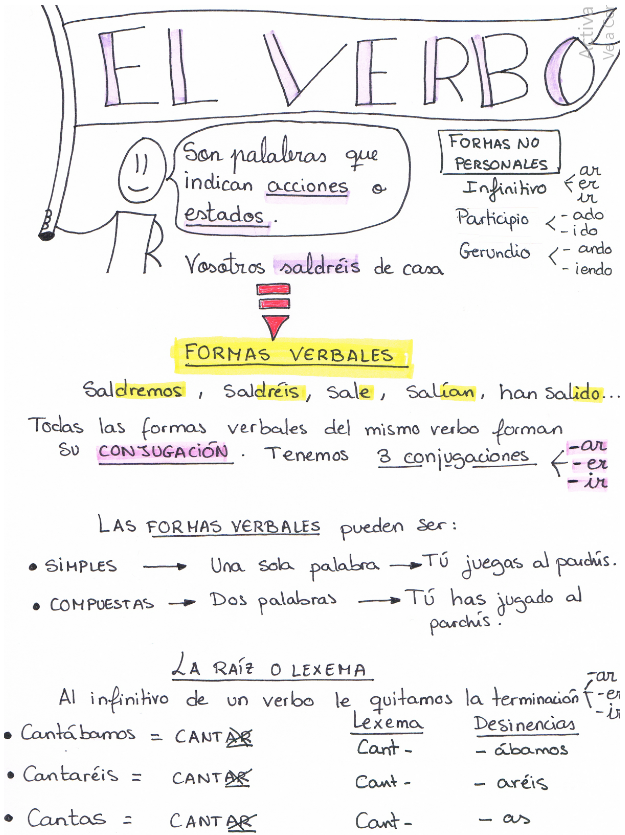 EL VERBO
Activa
Ve a Con
Son palabras que
indican acciones o
estados.
Vosotros saldréis de casa
FORMAS NO
PERSONALES
Infinitivo < ar
er
ir
Participio < - ado
- ido
Gerundio < - ando
- iendo
FORMAS VERBALES
Saldremos, saldréis, sale, salían, han salido...
Todas las formas verbales del mismo verbo forman
su CONJUGACIÓN. Tenemos 3 conjugaciones < -ar
-er
-ir
LAS FORMAS VERBALES pueden ser:
• SIMPLES → Una sola palabra → Tú juegas al parchís.
• COMPUESTAS → Dos palabras → Tú has jugado al
parchís.
LA RAÍZ O LEXEMA
Al infinitivo de un verbo le quitamos la terminación { -ar
-er
-ir
Lexema Desinencias
• Cantábamos = CANTAR Cant- - ábamos
• Cantaréis = CANTAR Cant- - aréis
• Cantas = CANTAR Cant- - as